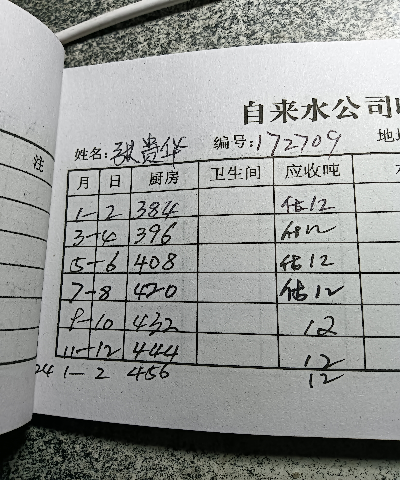 自来水公司
姓名: 张贵华 编号: 172709
注 月 日 厨房 卫生间 应收吨
1-2 384 估12
3-4 396 估12
5-6 408 估12
7-8 420 估12
9-10 432 12
11-12 444 12
24 1-2 456 12